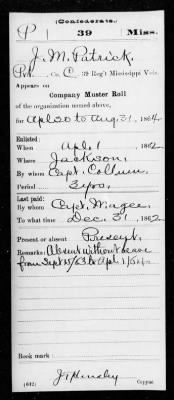 (Confederate.)
P 39 Miss.
J. M. Patrick
Pvt., Co. C, 39 Reg't Mississippi Vols.
Appears on
Company Muster Roll
of the organization named above,
for Apl 30 to Aug. 31, 1864.
Enlisted:
When Apl. 1, 1862
Where Jackson
By whom Capt. Collum
Period 3 yrs.
Last paid:
By whom Capt. Magee
To what time Dec. 31, 1862
Present or absent Present
Remarks: Absent without leave
from Sept 15/63 to Apl 1/64
Book mark:
(642) Copyist.